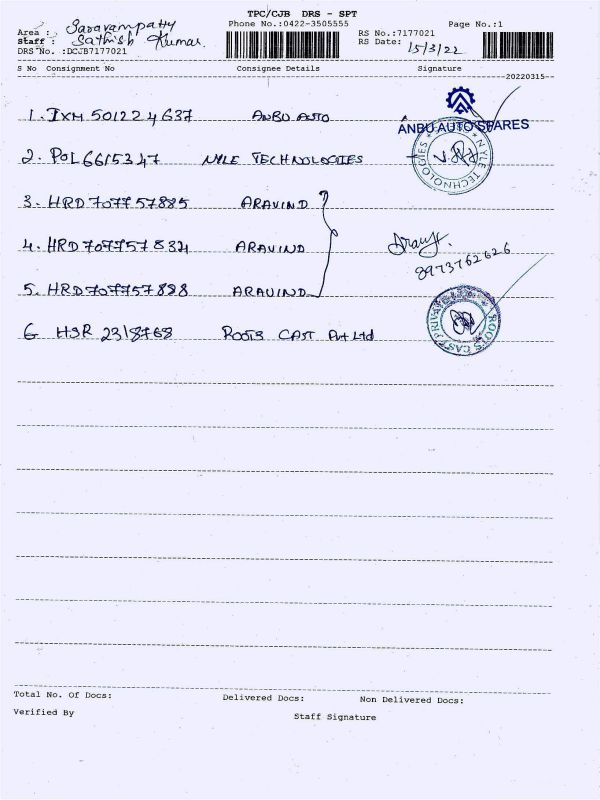 TPC/CJB DRS - SPT
Phone No.:0422-3505555
Page No.:1
Area : Saravampatty
Staff : Sathish Kumar.
DRS No. :DCJB7177021
RS No.:7177021
RS Date: 15/3/22
S No Consignment No Consignee Details Signature
20220315
1. IXM 501224637 ANBU AUTO
ANBU AUTO SPARES
2. POL6615347 NYLE TECHNOLOGIES
NYLE TECHNOLOGIES
3. HRD707757885 ARAVIND
4. HRD707757834 ARAVIND
8973762626
5. HRD707757888 ARAVIND
6 HSR 2318768 ROOTS CAST Pvt Ltd
ROOTS CAST PRIVATE
Total No. Of Docs: Delivered Docs: Non Delivered Docs:
Verified By Staff Signature